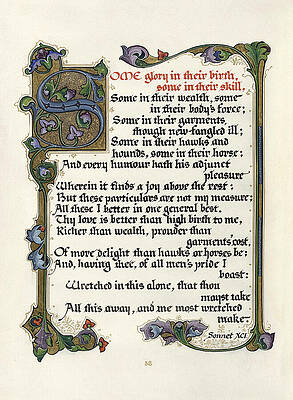 SOME glory in their birth,
some in their skill,
Some in their wealth, some
in their body's force;
Some in their garments,
though new-fangled ill;
Some in their hawks and
hounds, some in their horse:
And every humour hath his adjunct
pleasure
Wherein it finds a joy above the rest:
But these particulars are not my measure;
All these I better in one general best.
Thy love is better than high birth to me,
Richer than wealth, prouder than
garments' cost,
Of more delight than hawks or horses be:
And, having thee, of all men's pride I
boast:
Wretched in this alone, that thou
mayst take
All this away, and me most wretched
make.
Sonnet XCI